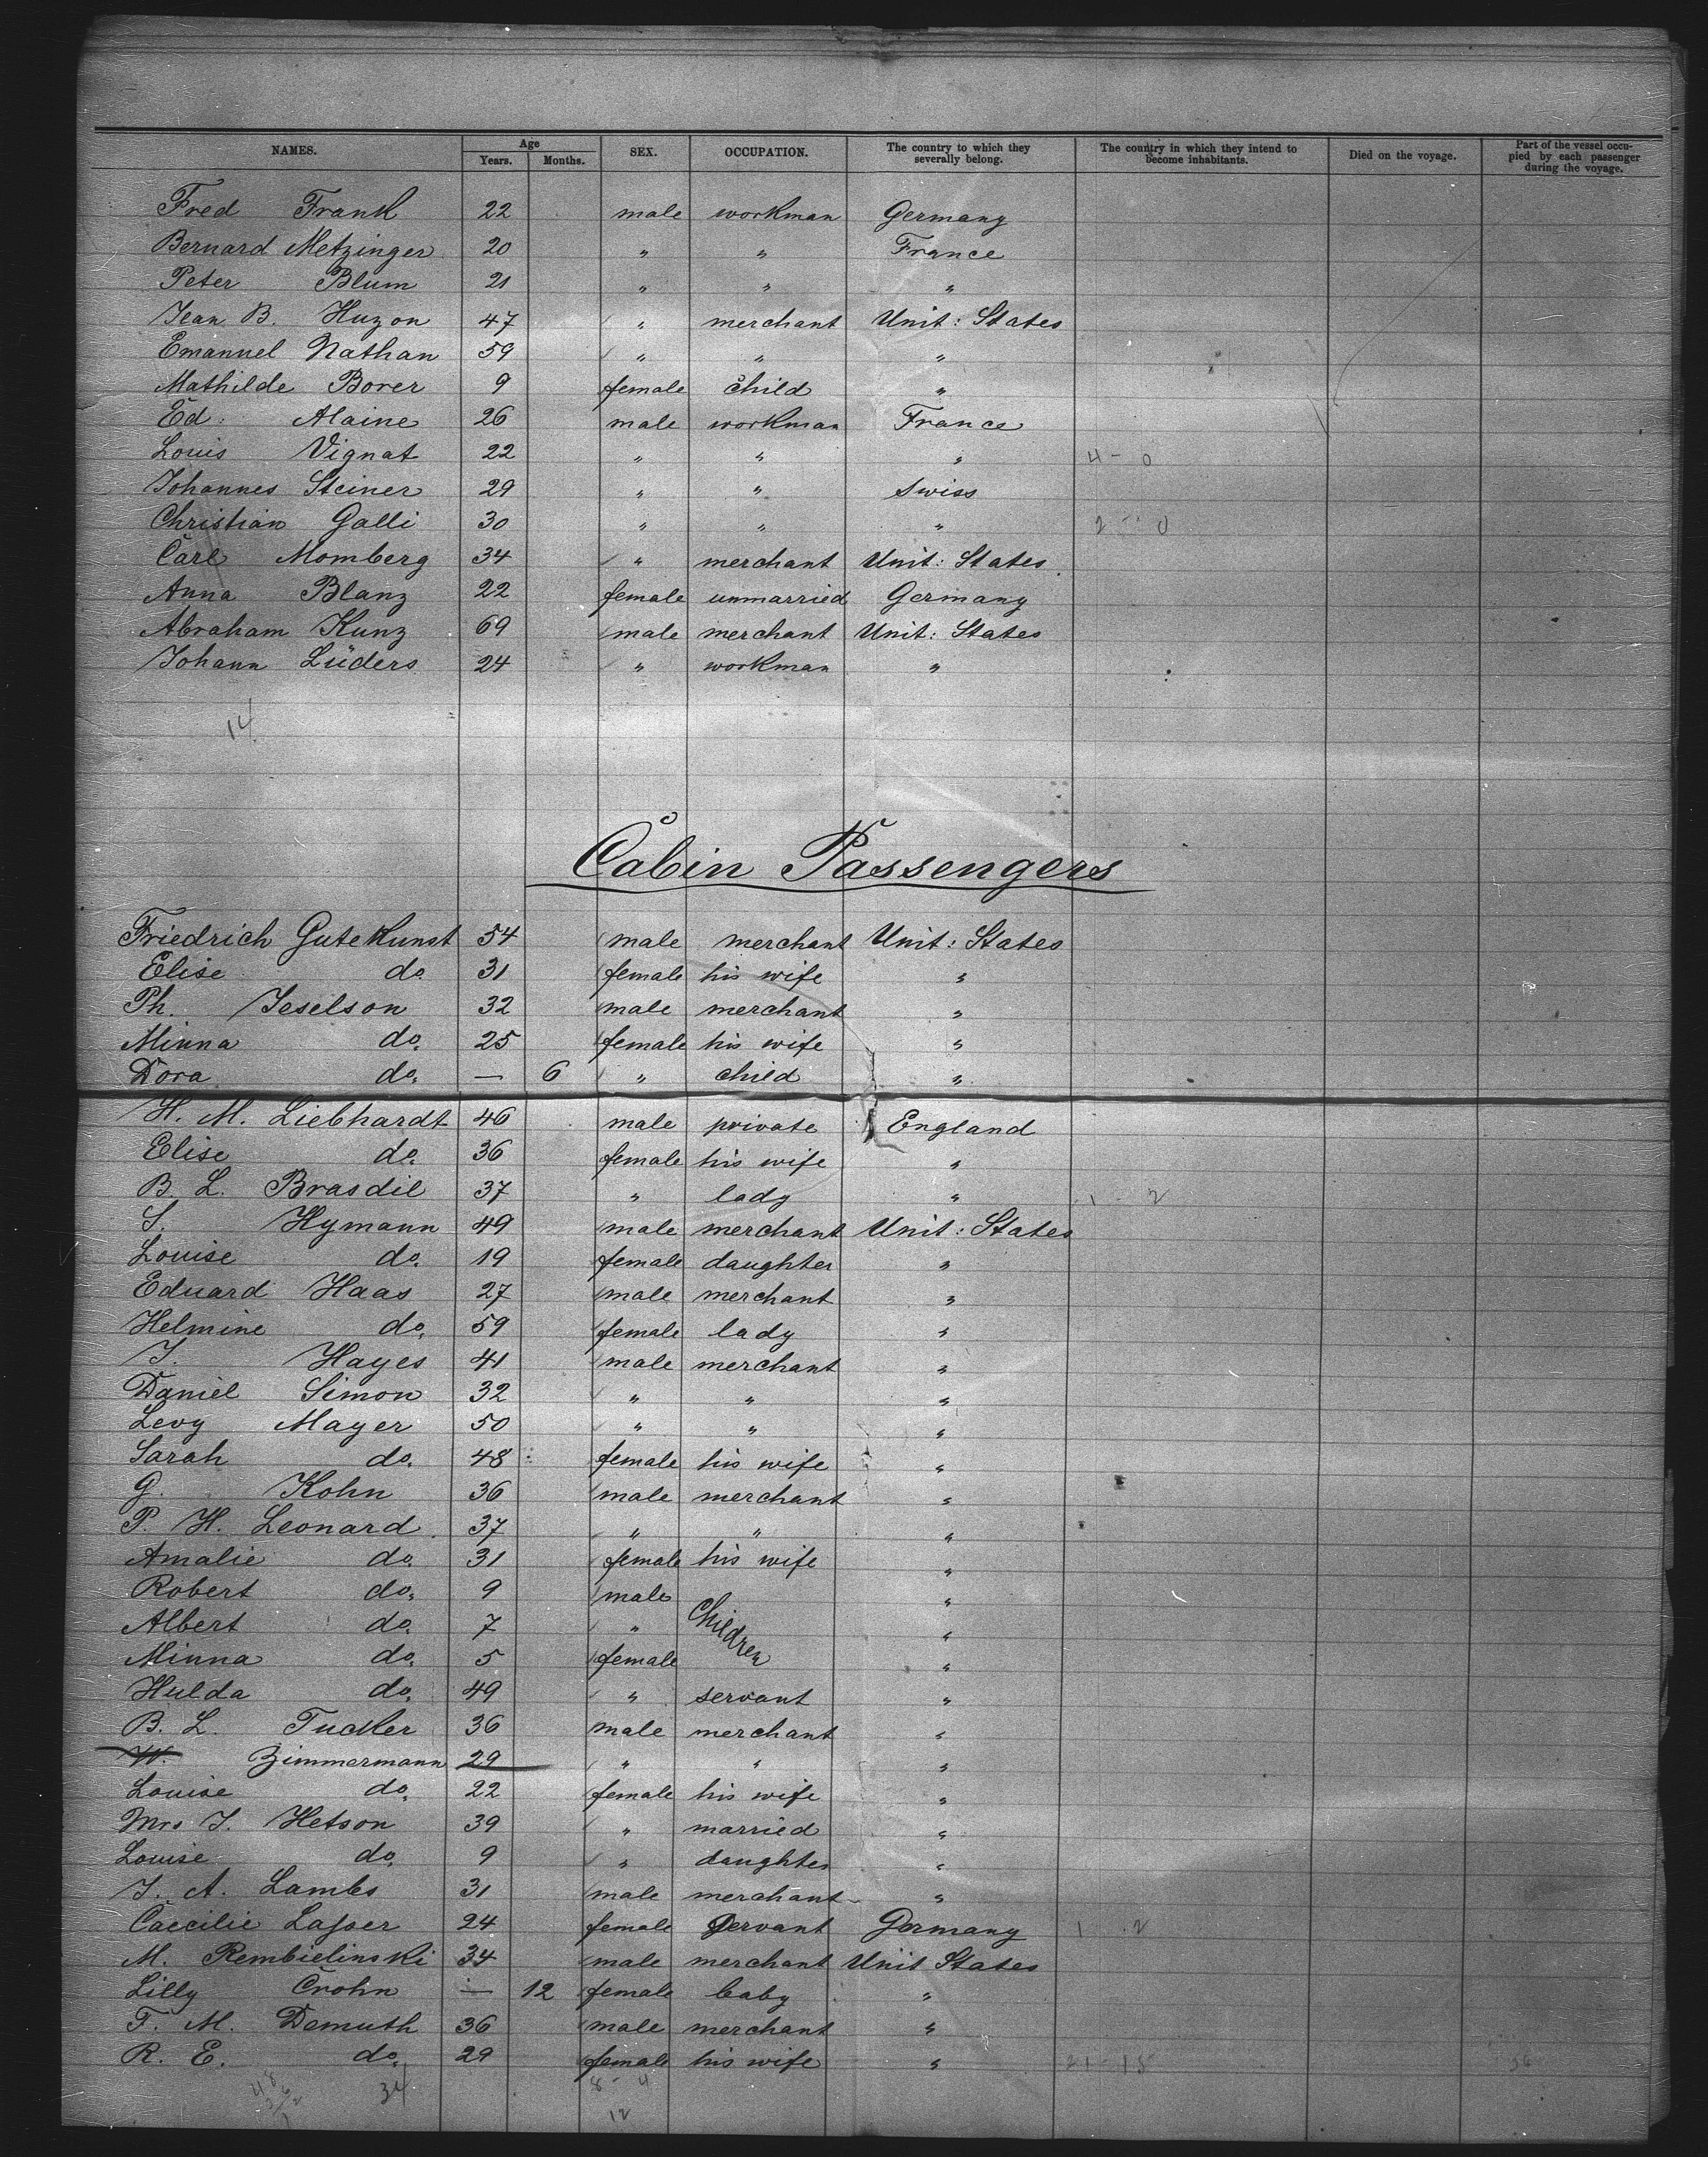 NAMES. Age Years. Months. SEX. OCCUPATION. The country to which they severally belong. The country in which they intend to become inhabitants. Died on the voyage. Part of the vessel occupied by each passenger during the voyage.
Fred Frank 22 male workman Germany
Bernard Metzinger 20 " " France
Peter Blum 21 " " "
Jean B. Huzon 47 " merchant Unit: States
Emanuel Nathan 59 " " "
Mathilde Borer 9 female child "
Ed: Alaine 26 male workman France
Louis Vignat 22 " " " 4 - 0
Johannes Steiner 29 " " Swiss
Christian Galli 30 " " " 2 - 0
Carl Momberg 34 " merchant Unit: States
Anna Blanz 22 female unmarried Germany
Abraham Kunz 69 male merchant Unit: States
Johann Lüders 24 " workman "
14
Cabin Passengers
Friedrich Gutekunst 54 male merchant Unit: States
Elise do. 31 female his wife "
Ph. Jeselson 32 male merchant "
Minna do. 25 female his wife "
Dora do. — 6 " child "
H. M. Liebhardt 46 male private England
Elise do. 36 female his wife "
B. L. Brasdil 37 " lady " 1 - 2
S. Hymann 49 male merchant Unit: States
Louise do. 19 female daughter "
Eduard Haas 27 male merchant "
Helmine do. 59 female lady "
J. Hayes 41 male merchant "
Daniel Simon 32 " " "
Levy Mayer 50 " " "
Sarah do. 48 female his wife "
G. Kohn 36 male merchant "
P. H. Leonard 37 " " "
Amalie do. 31 female his wife "
Robert do. 9 male "
Albert do. 7 " Children "
Minna do. 5 female "
Hulda do. 49 " servant "
B. L. Tucker 36 male merchant "
W. Zimmermann 29 " " "
Louise do. 22 female his wife "
Mrs J. Hetson 39 " married "
Louise do. 9 " daughter "
J. A. Lambs 31 male merchant "
Caecilie Lasser 24 female servant Germany 1 2
M. Rembielinski 34 male merchant Unit States
Lilly Crohn — 12 female baby "
F. M. Demuth 36 male merchant "
R. E. do. 29 female his wife " 21 - 15 36
48 34 8 - 4
12